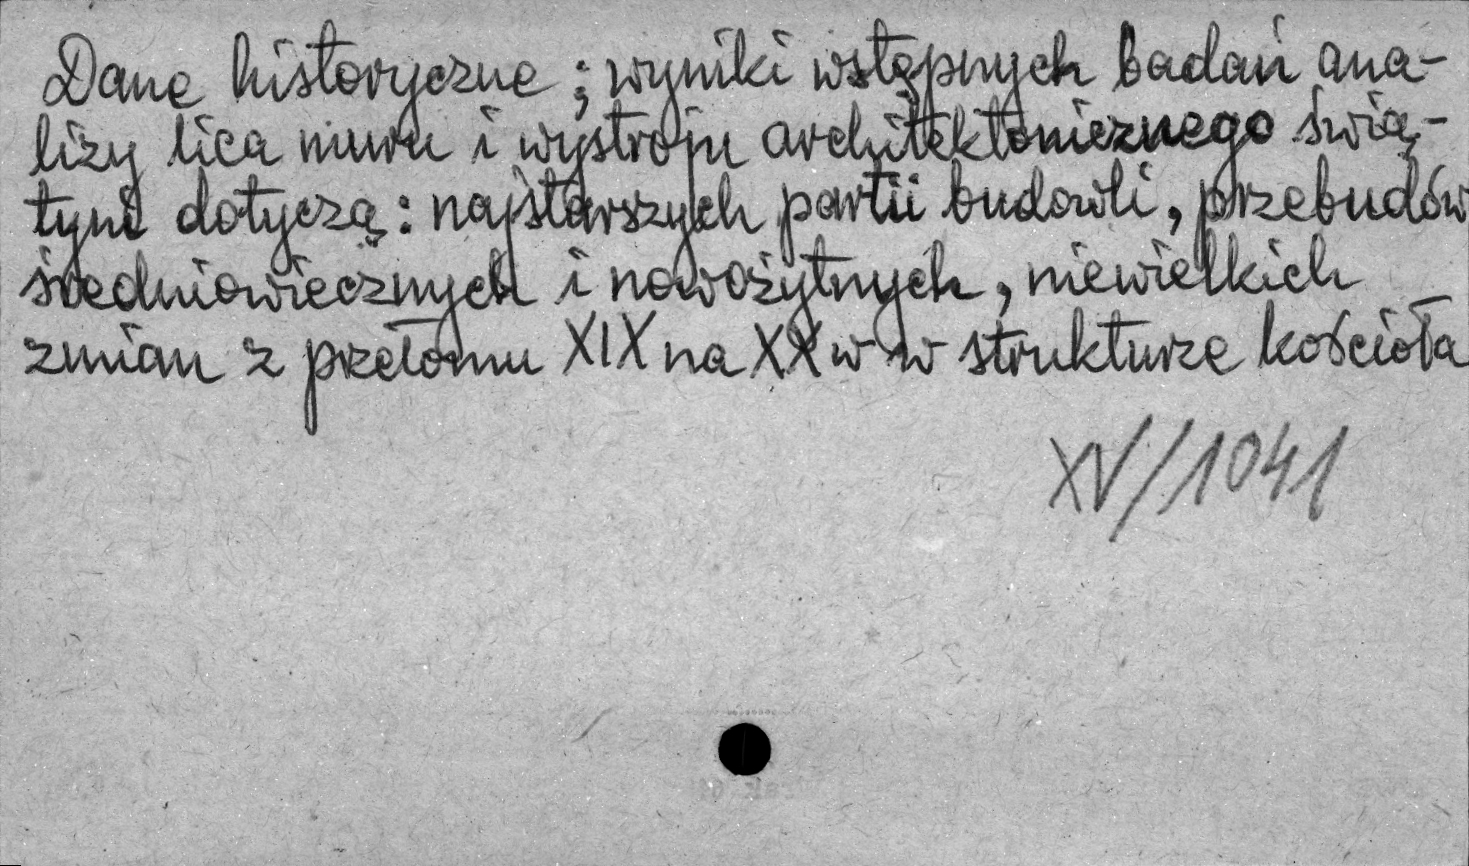 Dane historyczne; wyniki wstępnych badań ana-
lizy lica muru i wystroju architektonicznego świą-
tyni dotyczą: najstarszych partii budowli, przebudów
średniowiecznych i nowożytnych, niewielkich
zmian z przełomu XIX na XX w w strukturze kościoła
XV/1041